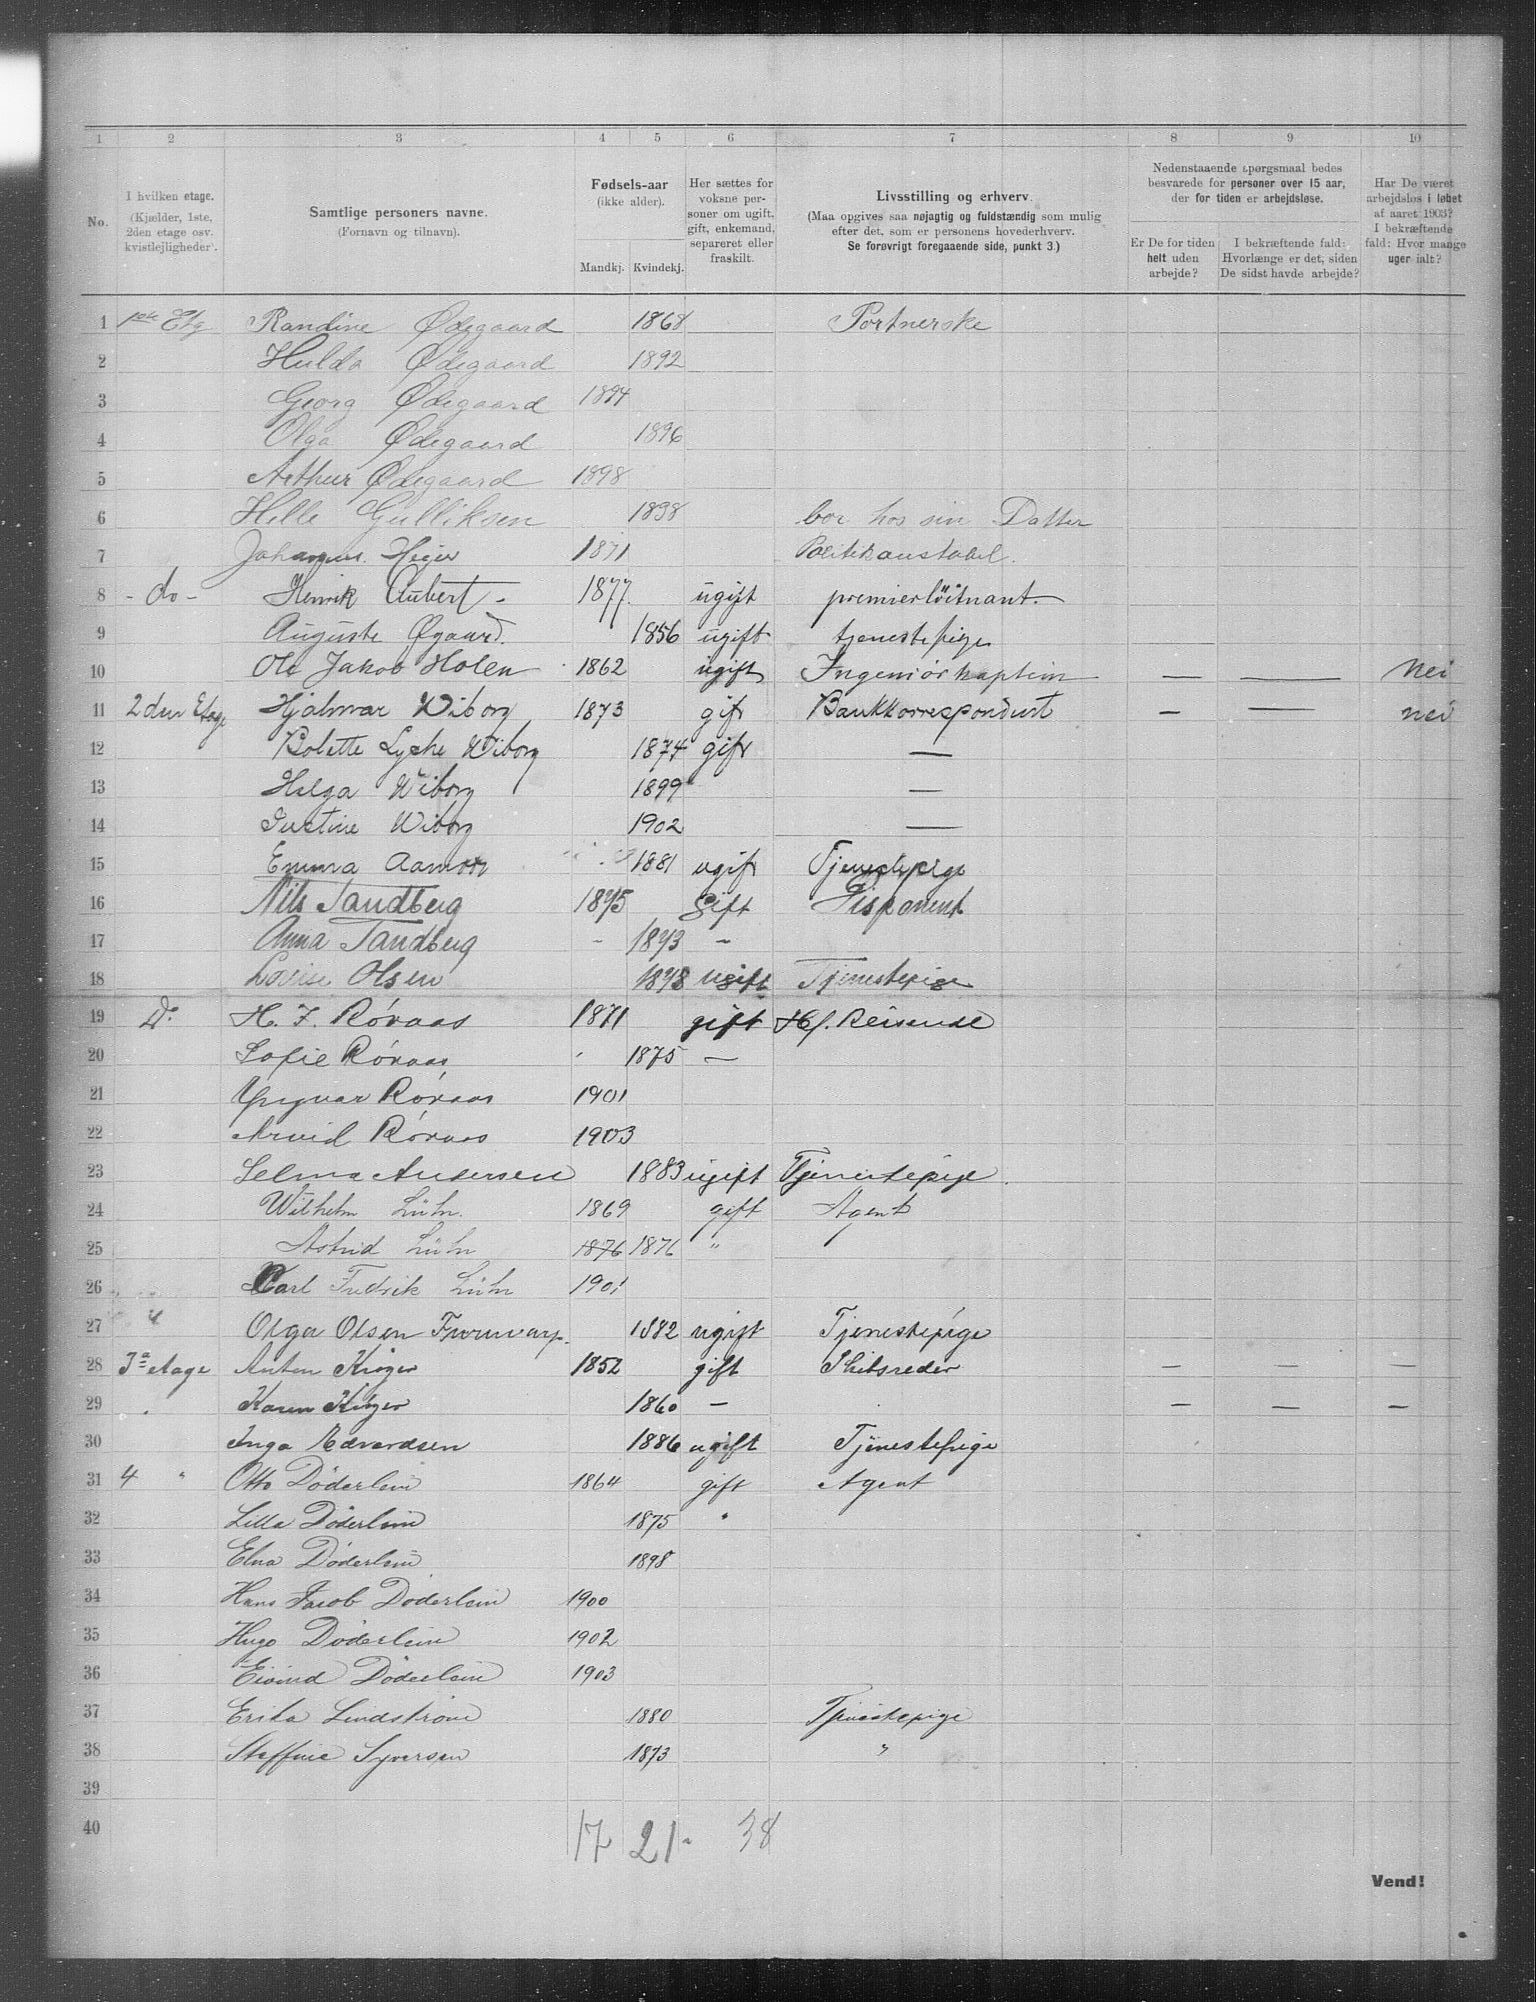 1 2 3 4 5 6 7 8 9 10
No.
I hvilken etage. (Kjælder, 1ste, 2den etage osv. kvistlejligheder).
Samtlige personers navne. (Fornavn og tilnavn).
Fødsels-aar (ikke alder). Mandkj. Kvindekj.
Her sættes for voksne personer om ugift, gift, enkemand, separeret eller fraskilt.
Livsstilling og erhverv. (Maa opgives saa nøjagtig og fuldstændig som mulig efter det, som er personens hovederhverv. Se forøvrigt foregaaende side, punkt 3.)
Nedenstaaende spørgsmaal bedes besvarede for personer over 15 aar, der for tiden er arbejdsløse.
Er De for tiden helt uden arbejde?
I bekræftende fald: Hvorlænge er det, siden De sidst havde arbejde?
Har De været arbejdsløs i løbet af aaret 1903? I bekræftende fald: Hvor mange uger ialt?
1 1ste Etg Randine Ødegaard 1868 Portnerske
2 Hulda Ødegaard 1892
3 Georg Ødegaard 1894
4 Olga Ødegaard 1896
5 Arthur Ødegaard 1898
6 Helle Gulliksen 1838 bor hos sin Datter
7 Johannes Heier 1871 Politikonstabel
8 - do - Henrik Aubert - 1877 ugift premierløitnant.
9 Auguste Øgaard. 1856 ugift tjenestepige
10 Ole Jakob Holen 1862 ugift Ingeniørkaptein — — Nei
11 2den Etage Hjalmar Wiborg 1873 gift Bankkorrespondent — — nei
12 Bolette Lyche Wiborg 1874 gift —
13 Helga Wiborg 1899 —
14 Justine Wiborg 1902 —
15 Emma Aamodt 1881 ugift Tjenestepige
16 Nils Tandberg 1875 Gift Disponent
17 Anna Tandberg - 1873 -
18 Lovise Olsen 1878 ugift Tjenestepige
19 Do H. F. Røraas 1871 gift Hf. Reisende
20 Sofie Røraas 1875 —
21 Yngvar Røraas 1901
22 Arvid Røraas 1903
23 Selma Andersen 1883 ugift Tjenestepige.
24 Wilhelm Lühr 1869 gift Agent
25 Astrid Lühr 1876 1876 "
26 Carl Fredrik Lühr 1901
27 " Olga Olsen 1882 ugift Tjenestepige
28 3die etage Anton Krøger 1852 gift Skibsreder — — —
29 Karen Krøger 1860 — — — —
30 Inga Edvardsen 1886 ugift Tjenestepige
31 4 " Otto Døderlein 1864 gift Agent
32 Lilla Døderlein 1875 "
33 Elna Døderlein 1898
34 Hans Jacob Døderlein 1900
35 Hugo Døderlein 1902
36 Eivind Døderlein 1903
37 Erika Lindstrøm 1880 Tjenestepige
38 Steffine Syversen 1873 "
39
40
17 21 - 38
Vend!